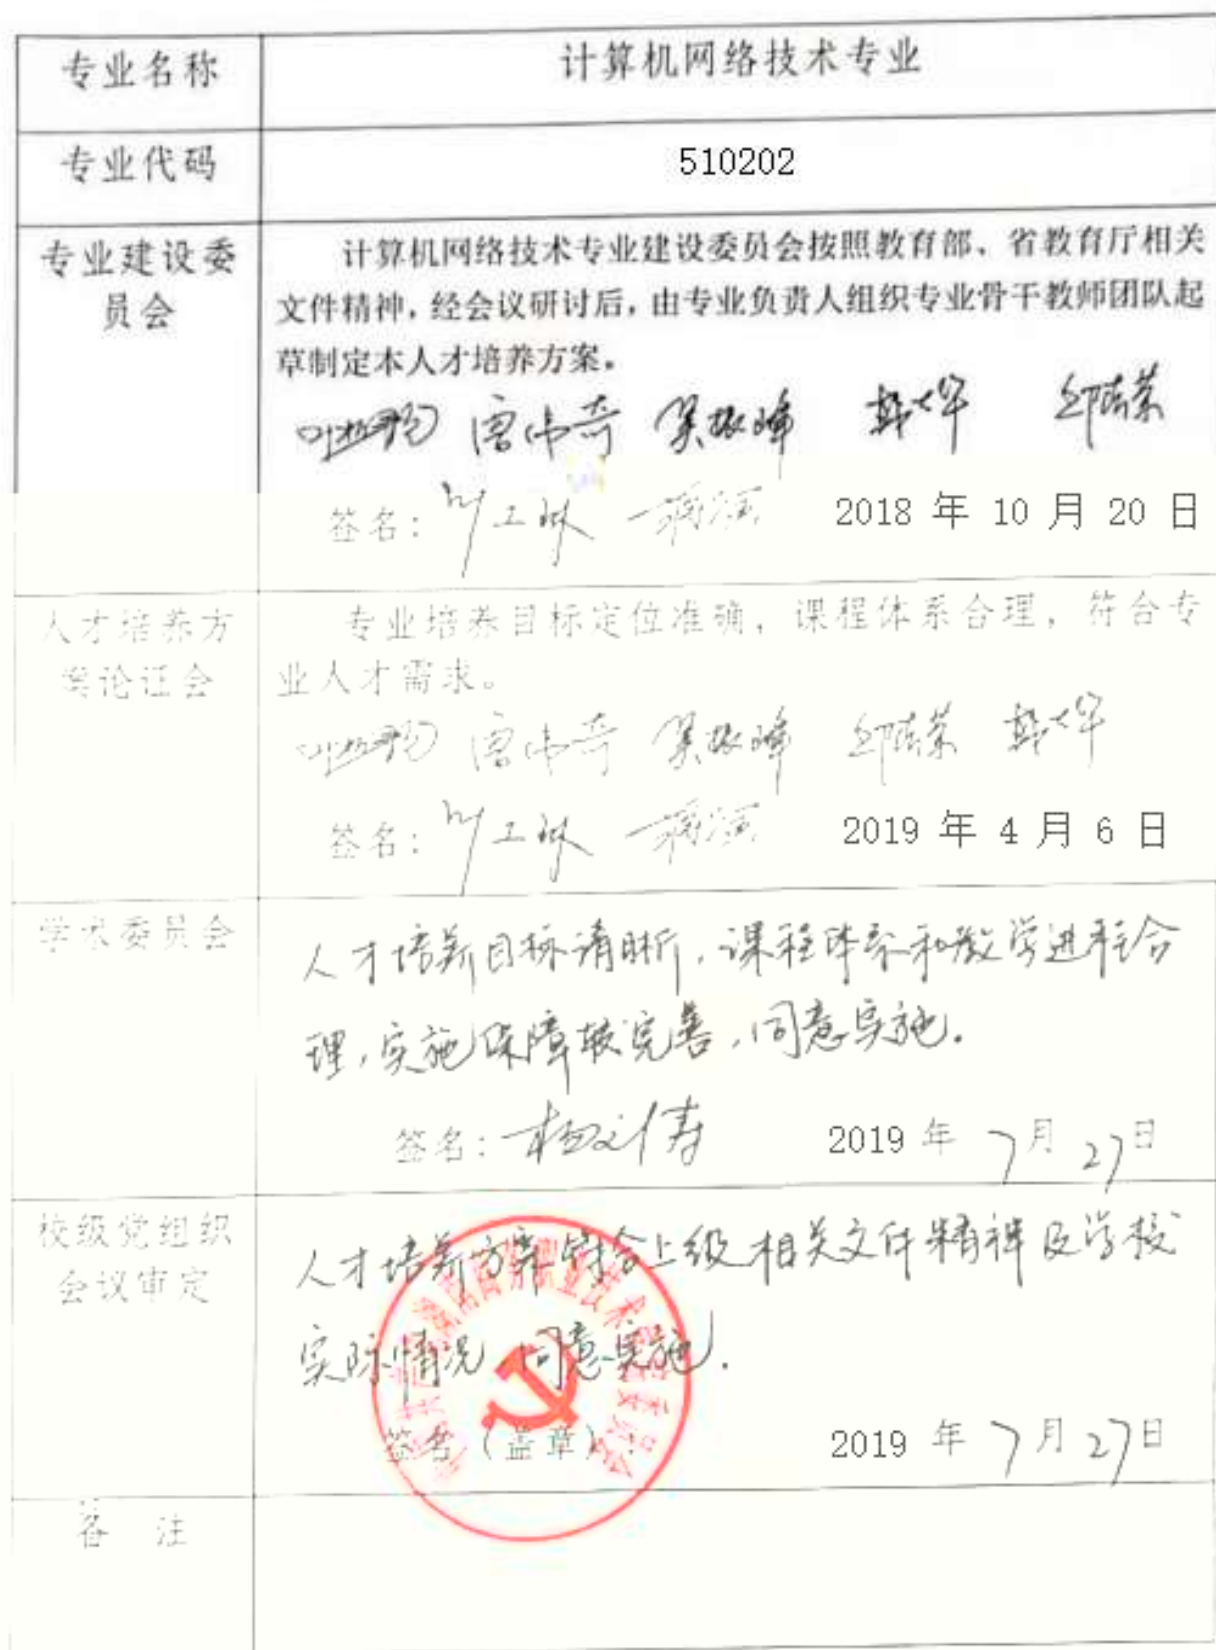 专业名称
计算机网络技术专业
专业代码
510202
专业建设委
员会
计算机网络技术专业建设委员会按照教育部、省教育厅相关
文件精神，经会议研讨后，由专业负责人组织专业骨干教师团队起
草制定本人才培养方案。
唐伟奇 吴振峰
签名： 2018 年 10 月 20 日
人才培养方
案论证会
专业培养目标定位准确，课程体系合理，符合专
业人才需求。
唐伟奇 吴振峰
签名： 2019 年 4 月 6 日
学术委员会
人才培养目标清晰，课程体系和教学进程合
理，实施保障较完善，同意实施。
签名： 2019 年 7 月 27 日
校级党组织
会议审定
人才培养方案符合上级相关文件精神及学校
实际情况，同意实施.
签名（盖章）： 2019 年 7 月 27 日
备 注